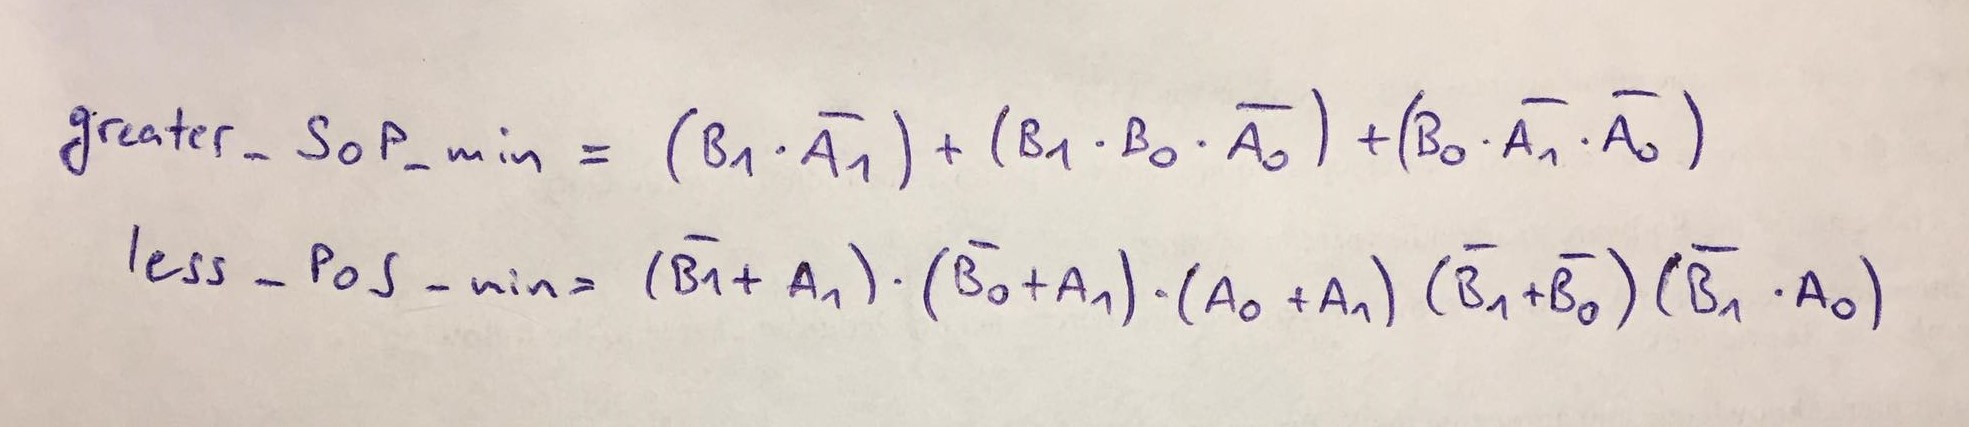 greater_SoP_min = (B₁·A̅₁)+(B₁·B₀·A̅₀)+(B₀·A̅₁·A̅₀)
less_PoS_min= (B̅₁+A₁)·(B̅₀+A₁)·(A₀+A₁)(B̅₁+B̅₀)(B̅₁·A₀)